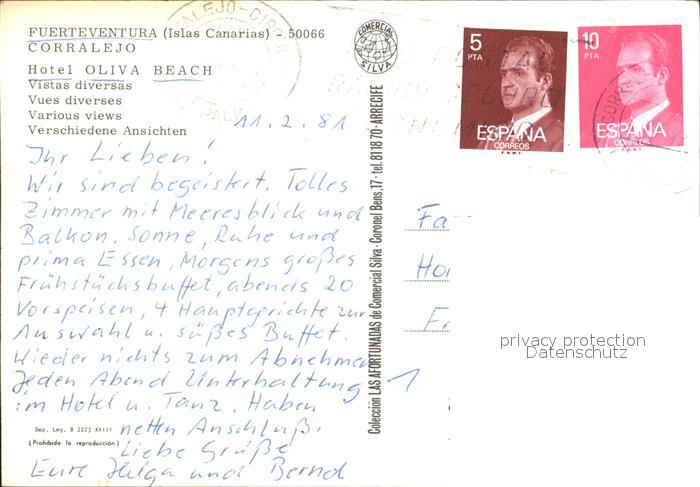 FUERTEVENTURA (Islas Canarias) - 50066
CORRALEJO
Hotel OLIVA BEACH
Vistas diversas
Vues diverses
Various views
Verschiedene Ansichten
11.2.81
Ihr Lieben!
Wir sind begeistert. Tolles
Zimmer mit Meeresblick und
Balkon. Sonne, Ruhe und
prima Essen, Morgens großes
Frühstücksbuffet, abends 20
Vorspeisen, 4 Hauptgerichte zur
Auswahl u. süßes Buffet.
Wieder nichts zum Abnehmen
Jeden Abend Unterhaltung
im Hotel u. Tanz. Haben
netten Anschluß.
Liebe Grüße
Eure Helga und Bernd
Dep. Leg. B 2223 XXIII
(Prohibida la reproducción)
COMERCIAL
SILVA
Colección LAS AFORTUNADAS de Comercial Silva - Coronel Bens, 17 - tel. 81 18 70 - ARRECIFE
5
PTA
ESPAÑA
CORREOS
F.N.M.T.
10
PTA
ESPAÑA
CORREOS
F.N.M.T.
Fa
Ho
1
privacy protection
Datenschutz